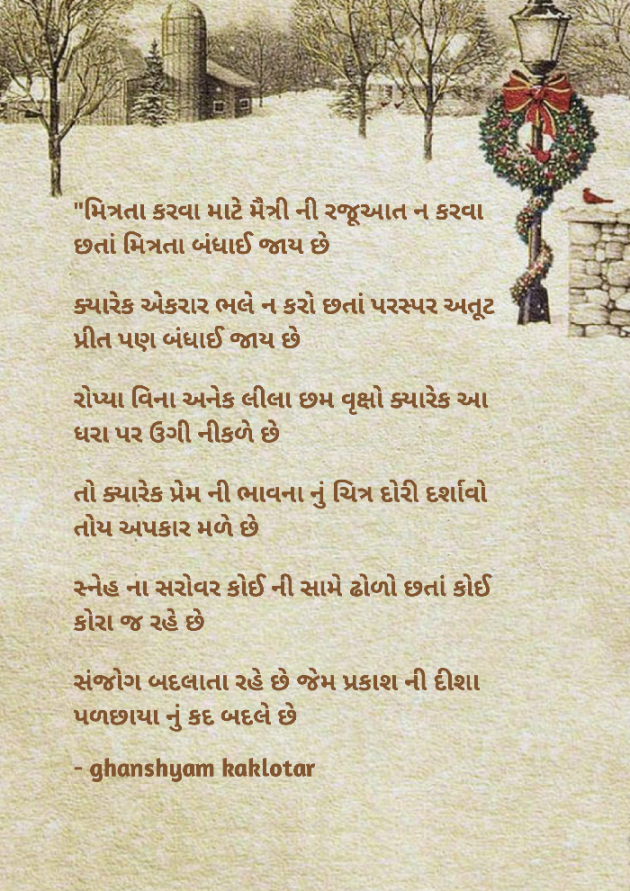 "મિત્રતા કરવા માટે મૈત્રી ની રજૂઆત ન કરવા
છતાં મિત્રતા બંધાઈ જાય છે
ક્યારેક એકરાર ભલે ન કરો છતાં પરસ્પર અતૂટ
પ્રીત પણ બંધાઈ જાય છે
રોપ્યા વિના અનેક લીલા છમ વૃક્ષો ક્યારેક આ
ધરા પર ઉગી નીકળે છે
તો ક્યારેક પ્રેમ ની ભાવના નું ચિત્ર દોરી દર્શાવો
તોય અપકાર મળે છે
સ્નેહ ના સરોવર કોઈ ની સામે ઢોળો છતાં કોઈ
કોરા જ રહે છે
સંજોગ બદલાતા રહે છે જેમ પ્રકાશ ની દીશા
પળછાયા નું કદ બદલે છે
- ghanshyam kaklotar